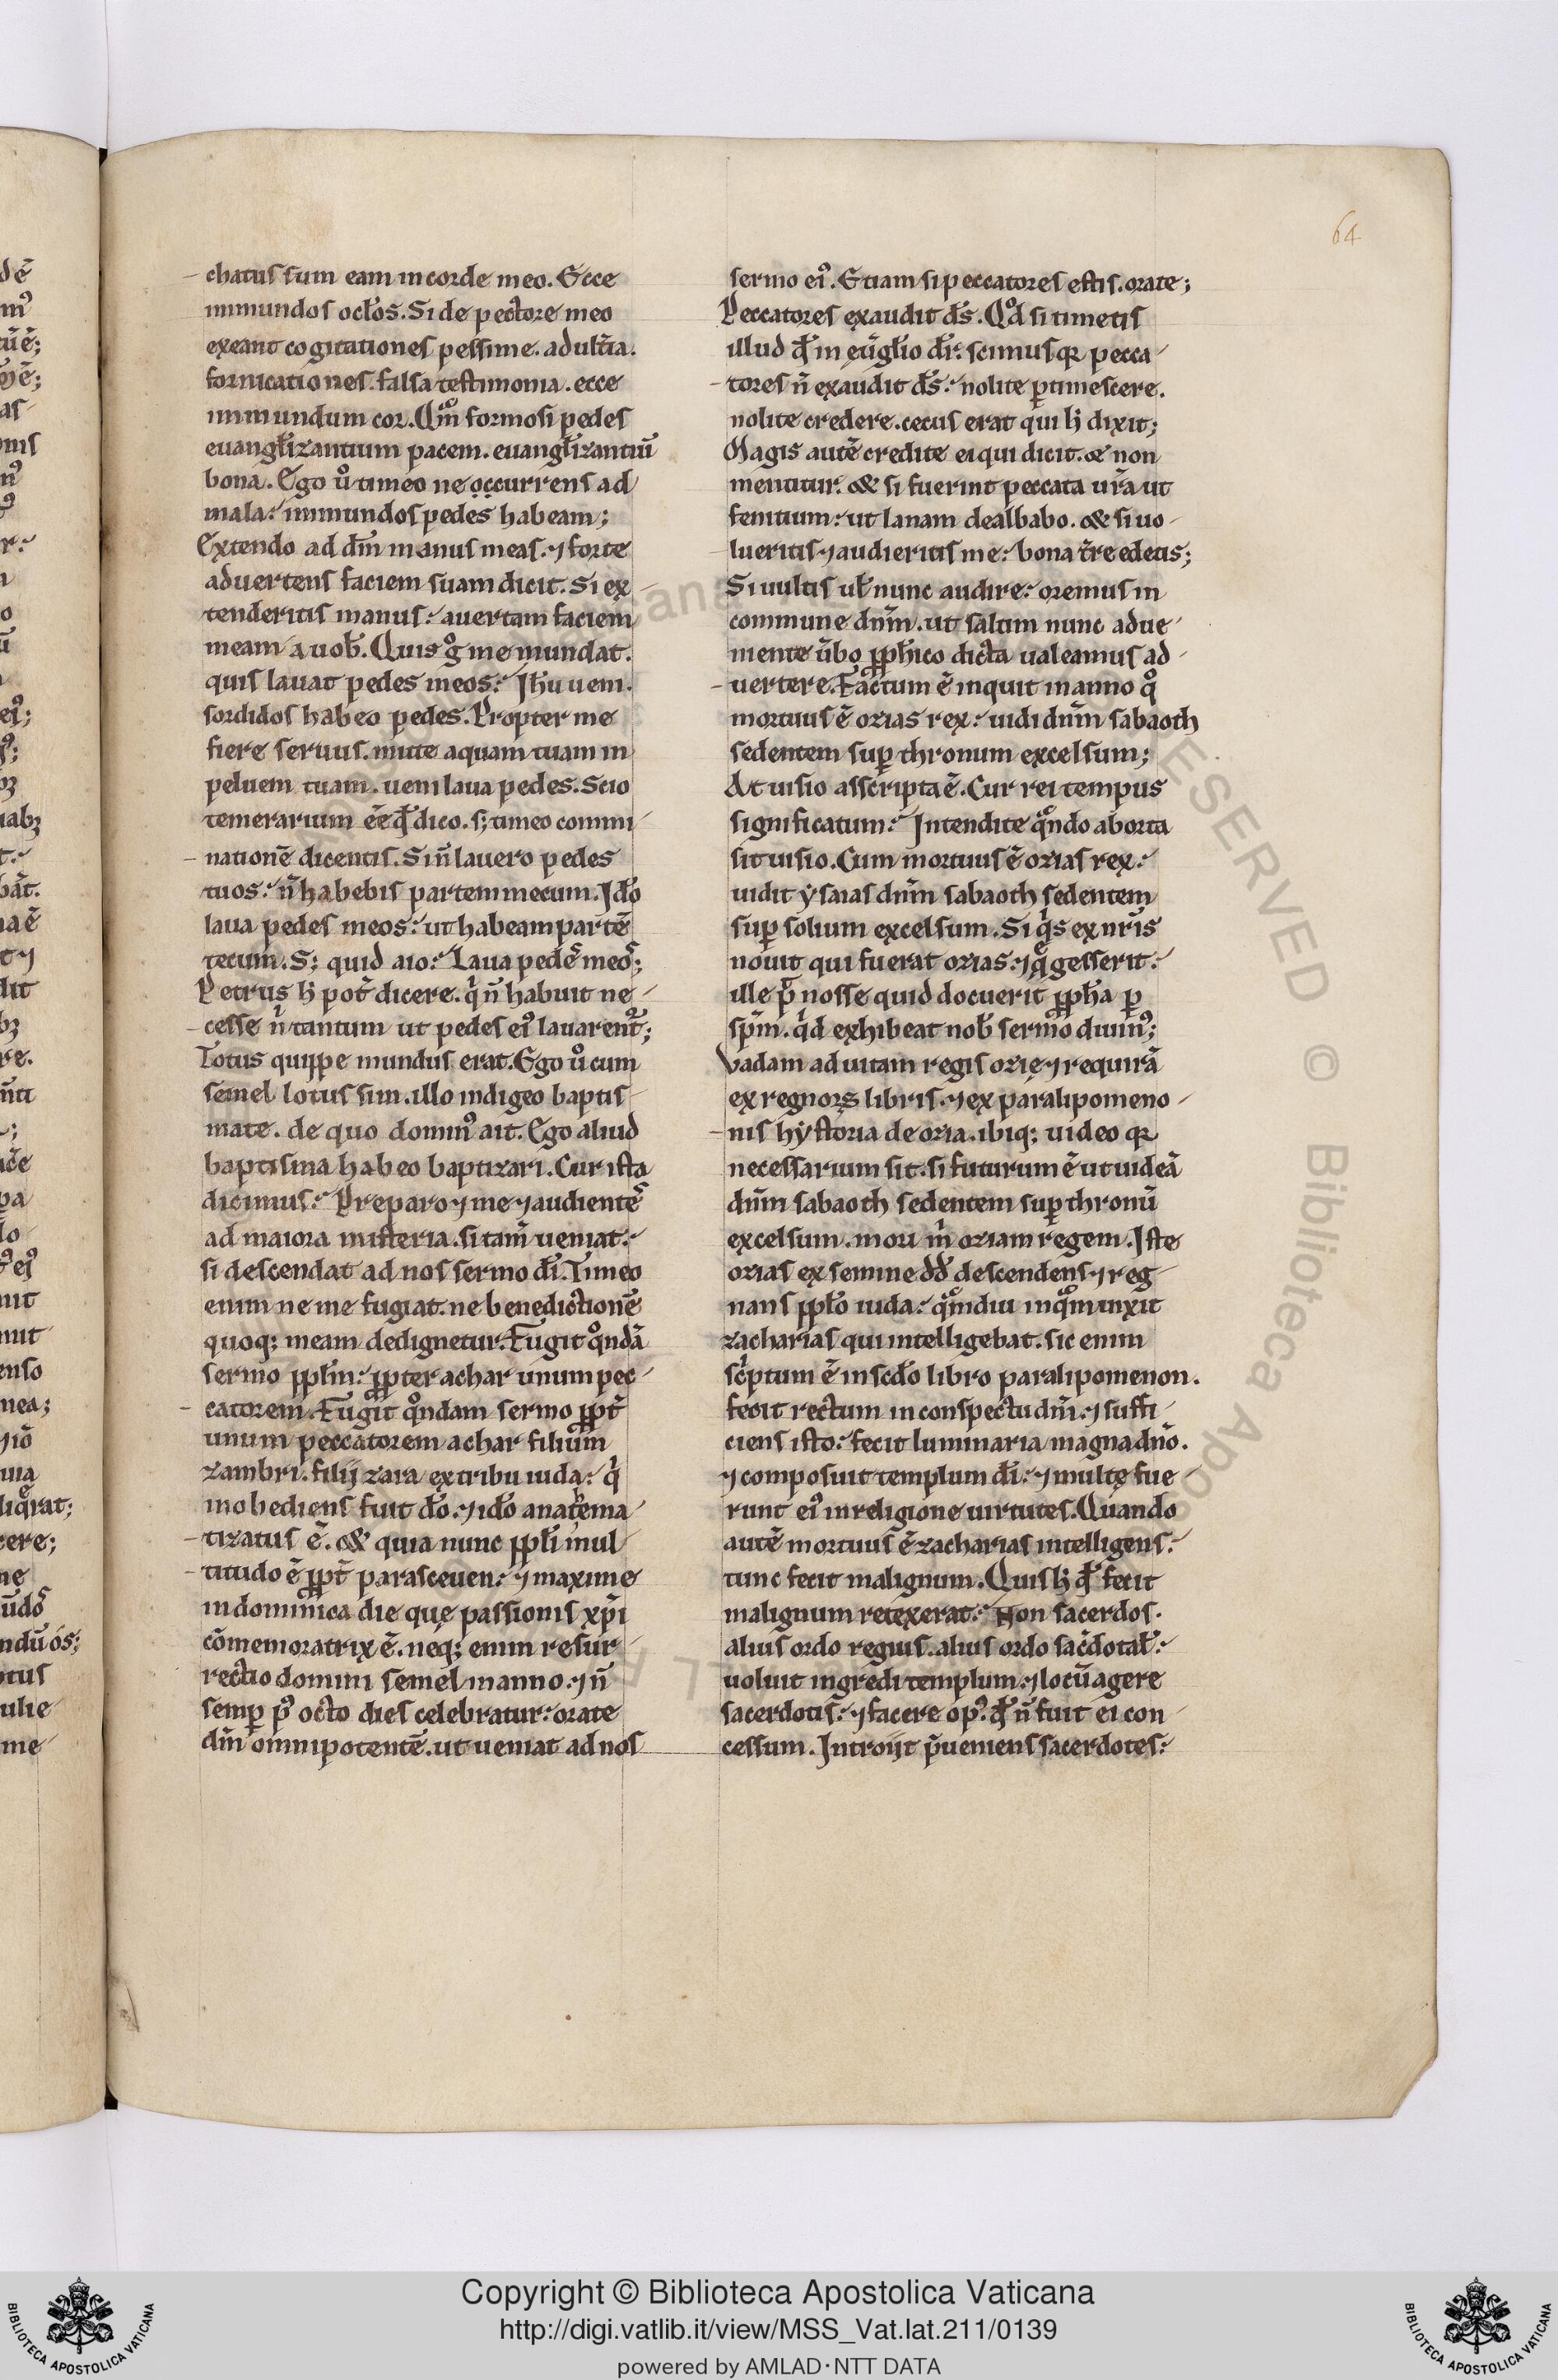 64
chatus sum eam in corde meo. Ecce
inmundos ocl̄os. Si de pectore meo
exeant cogitationes pessime. adult̄ia.
fornicationes. falsa testimonia. ecce
inmundum cor. Qm̊ formosi pedes
euangl̄izantium pacem. euangl̄izantiū
bona. Ego ů timeo ne occurrens ad
mala: inmundos pedes habeam;
Extendo ad dm̄ manus meas. ⁊ forte
aduertens faciem suam dicit. Si ex
tenderitis manus: auertam faciem
meam a uob̄. Quis g̊ me mundat.
quis lauat pedes meos: Ih̄u ueni.
sordidos habeo pedes. Propter me
fiere seruus. mitte aquam tuam in
peluem tuam. ueni laua pedes. Scio
temerarium ēē qd̄ dico. s; timeo commi
nationē dicentis. Si n̄ lauero pedes
tuos: n̄ habebis partem mecum. Id̄o
laua pedes meos: ut habeam partē
tecum. S; quid aio: Laua pedes meos;
Petrus h̄ pot̄ dicere. q̇ n̄ habuit ne
cesse n̄ tantum ut pedes eiꝰ lauarent̄;
Totus quippe mundus erat. Ego ů cum
semel lotus sim. illo indigeo baptis
mate. de quo dominꝰ ait. Ego aliud
baptisma habeo baptizari. Cur ista
dicimus: Preparo ⁊ me ⁊ audientes
ad maiora misteria. si tam̄ ueniat:
si descendat ad nos sermo dī. Timeo
enim ne me fugiat. ne benedictionē
quoq; meam dedignetur. Fugit q̊ndā
sermo ppl̄m: ꝓpter achar unum pec
catorem. Fugit q̊ndam sermo ꝓpt̄
unum peccatorem achar filium
zambri. filij zara ex tribu iuda: q̇
inobediens fuit dō. ⁊ id̄o anathema
tizatus ē. & quia nunc ppl̄i mul
titudo ē ꝓpt̄ parasceuen: ⁊ maxime
in dominica die que passionis xp̄i
cōmemoratrix ē. neq; enim resur
rectio domini semel in anno. ⁊ n̄
semꝑ pꝰ octo dies celebratur: orate
dm̄ omnipotentē. ut ueniat ad nos
sermo eiꝰ. Etiam si peccatores estis. orate;
Peccatores exaudit ds̄. Qd̊ si timetis
illud qd̄ in eūgl̄io dr̄: scimus qꝛ pecca
tores n̄ exaudit ds̄: nolite ꝑtimescere.
nolite credere. cecus erat qui h̄ dixit;
Magis autē credite ei qui dicit. & non
mentitur. & si fuerint peccata ur̄a ut
fenitium: ut lanam dealbabo. & si uo
lueritis ⁊ audieritis me: bona t̄re edetis;
Si uultis ul̄ nunc audire: oremus in
commune dnm̄. ut saltim nunc adue
niente ūbo ꝓph̄ico dicta ualeamus ad
uertere. Factum ē inquit in anno q̊
mortuus ē ozias rex: uidi dnm̄ sabaoth
sedentem suꝑ thronum excelsum;
At uisio asscripta ē. Cur rei tempus
significatum: Intendite q̊ndo aborta
sit uisio. Cum mortuus ē ozias rex:
uidit ysaias dnm̄ sabaoth sedentem
suꝑ solium excelsum. Si q̇s ex nr̄is
nouit qui fuerat ozias: ⁊ q̄ gesserit:
ille p̄ nosse quid docuerit ꝓph̄a ꝑ
spm̄. q̇d exhibeat nob̄ sermo diuinꝰ;
Vadam ad uitam regis ozie ⁊ requirā
ex regnoꝝ libris. ⁊ ex paralipomeno
nis hystoria de ozia. ibiq; uideo qꝛ
necessarium sit. si futurum ē ut uideā
dnm̄ sabaoth sedentem suꝑ thronū
excelsum. mori m̄ oziam regem. Iste
ozias ex semine dd̄ descendens ⁊ reg
nans ppl̄o iuda: q̊mdiu inq̊m uixit
zacharias qui intelligebat. sic enim
sc̄ptum ē in scdo libro paralipomenon.
fecit rectum in conspectu dn̄i. ⁊ suffi
ciens isto: fecit luminaria magna dn̄o.
⁊ composuit templum dī: ⁊ multę fue
runt eiꝰ in religione uirtutes. Quando
autē mortuus ē zacharias intelligens:
tunc fecit malignum. Quis h̄ qd̄ fecit
malignum retexerat: Non sacerdos.
alius ordo regius. alius ordo sac̄dotal̄:
uoluit ingredi templum. ⁊ locū agere
sacerdotis: ⁊ facere opꝰ. qd̄ n̄ fuit ei con
cessum. Introijt p̄ueniens sacerdotes:
Copyright © Biblioteca Apostolica Vaticana
http://digi.vatlib.it/view/MSS_Vat.lat.211/0139
powered by AMLAD·NTT DATA
BIBLIOTECA APOSTOLICA VATICANA
BIBLIOTECA APOSTOLICA VATICANA